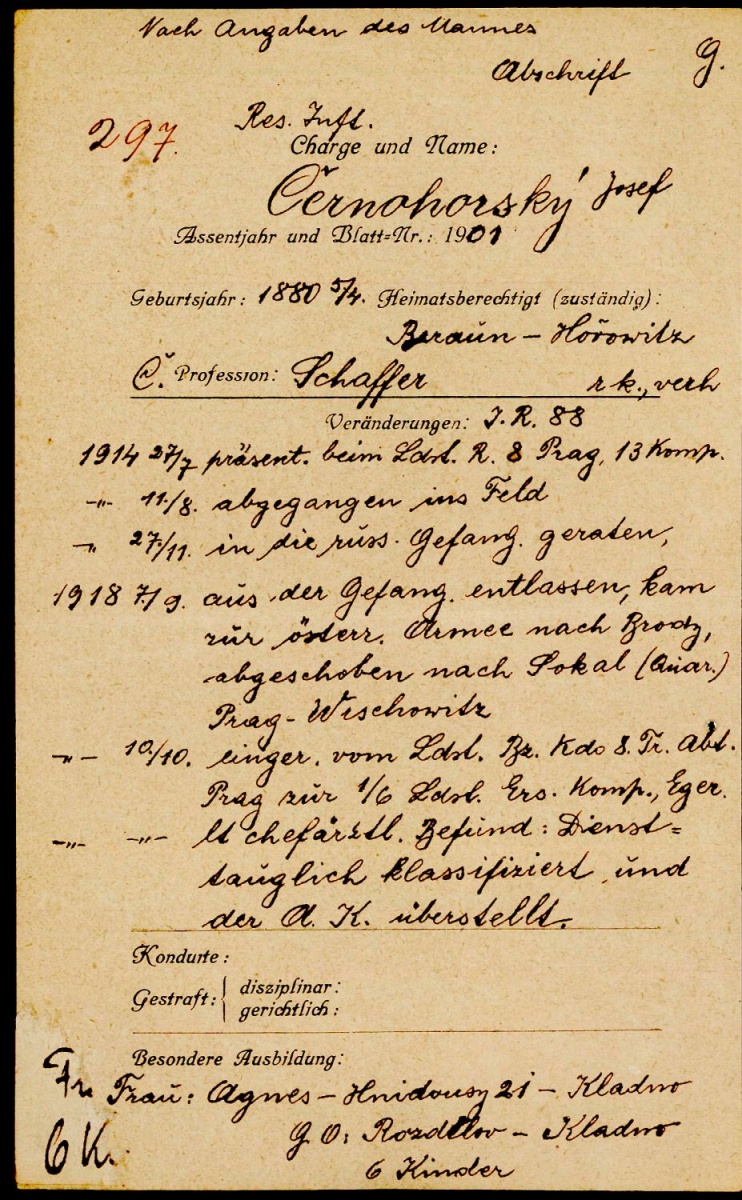 Nach Angaben des Mannes
Abschrift G.
297.
Res. Inft.
Charge und Name:
Černohorský Josef
Assentjahr und Blatt-Nr.: 1901
Geburtsjahr: 1880 5/4. Heimatsberechtigt (zuständig):
Beraun – Hořowitz
Č. Profession: Schaffer r k., verh
Veränderungen: I. R. 88
1914 27/7 präsent. beim Ldst. R. 8 Prag, 13 Komp.
-"- 11./8. abgegangen ins Feld
-" 27./11. in die russ. Gefang. geraten,
1918 7./9. aus der Gefang. entlassen, kam
zur österr. Armee nach Brody,
abgeschoben nach Sokal (Quar.)
Prag - Wischowitz
-"- 10./10. einger. vom Ldst. Bz. Kdo 8. Tr. Abt.
Prag zur 1/6 Ldst. Ers. Komp., Eger.
-"- -"- lt chefärztl. Befund: Dienst=
tauglich klassifiziert und
der A. K. überstellt.
Konduite:
Gestraft: disziplinar:
gerichtlich:
Besondere Ausbildung:
Fr. Frau: Agnes – Hnidousy 21 – Kladno
G. O: Rozdělov – Kladno
6 K. 6 Kinder